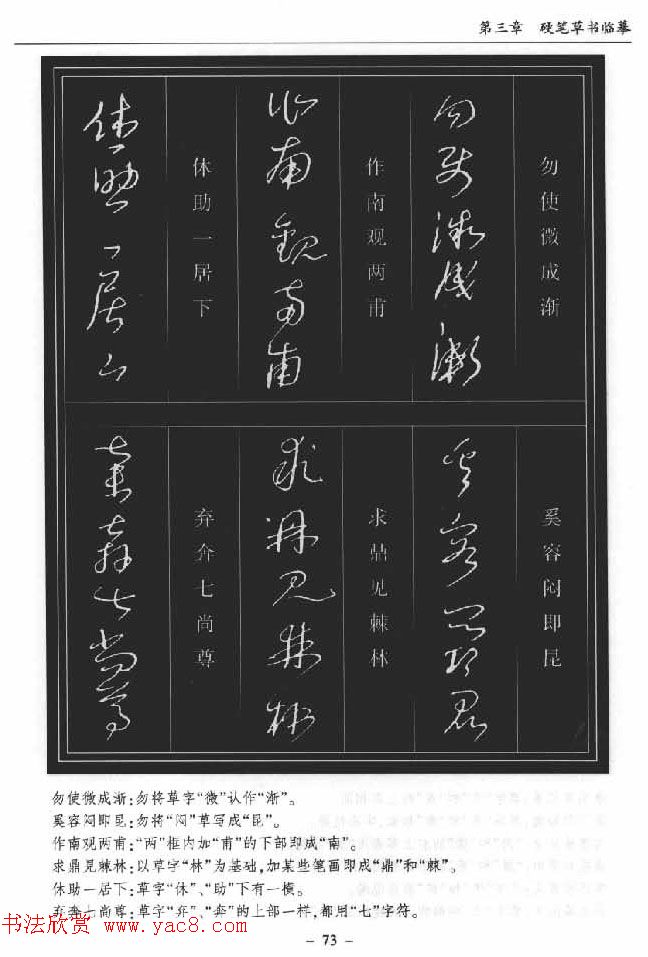 第三章 硬笔草书临摹
勿使微成渐
勿使微成渐
作南观两甫
作南观两甫
休助一居下
休助一居下
奚容闷即昆
奚容闷即昆
求鼎见棘林
求鼎见棘林
弃奔七尚尊
弃奔七尚尊
勿使微成渐:勿将草字“微”认作“渐”。
奚容闷即昆:勿将“闷”草写成“昆”。
作南观两甫:“两”框内加“甫”的下部即成“南”。
求鼎见棘林:以草字“林”为基础,加某些笔画即成“鼎”和“棘”。
休助一居下:草字“休”、“助”下有一横。
弃奔七尚尊:草字“弃”、“奔”的上部一样,都用“七”字符。
书法欣赏 www.yac8.com
- 73 -